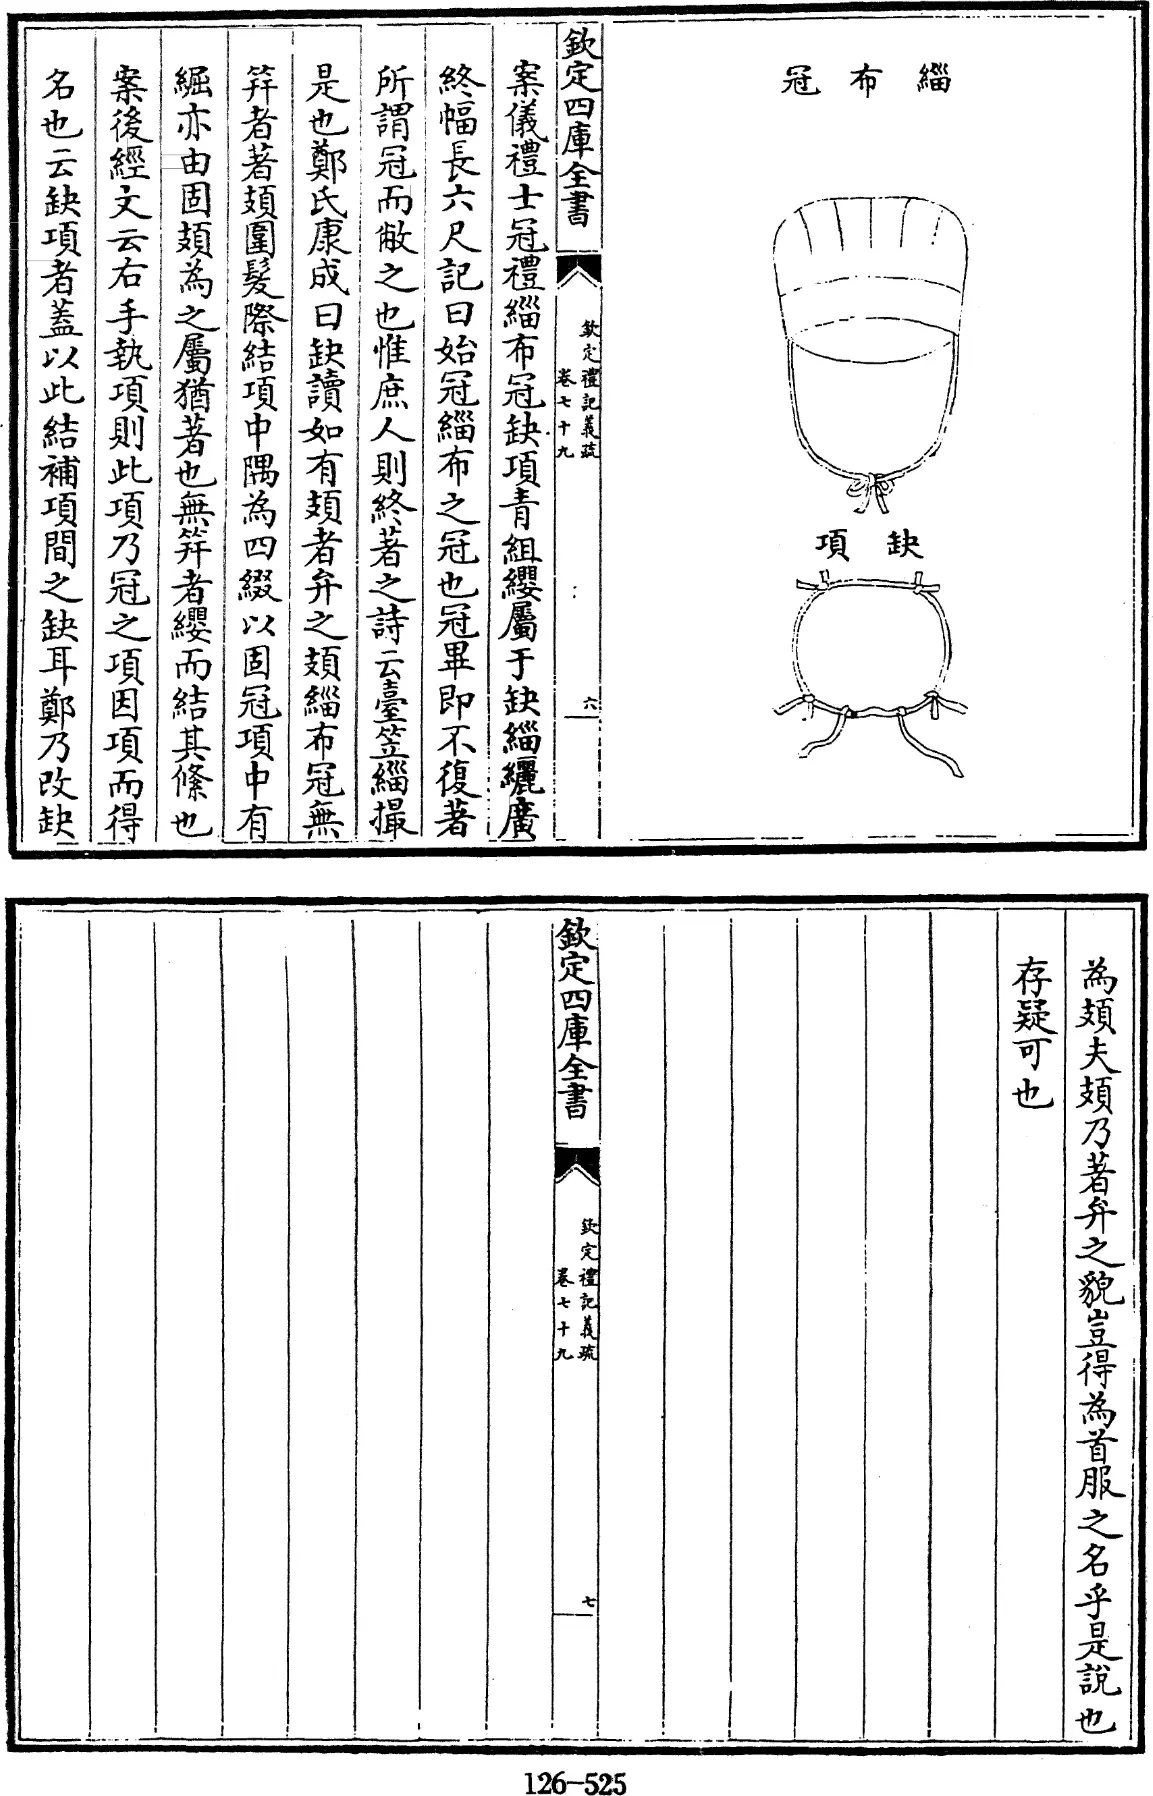 緇布冠
缺項
欽定四庫全書
欽定禮記義疏
卷七十九
六
案儀禮士冠禮緇布冠缺項青組纓屬于缺緇纚廣
終幅長六尺記曰始冠緇布之冠也冠畢即不復著
所謂冠而敝之也惟庶人則終著之詩云臺笠緇撮
是也鄭氏康成曰缺讀如有頍者弁之頍緇布冠無
笄者著頍圍髮際結項中隅為四綴以固冠項中有
䋿亦由固頍為之屬猶著也無笄者纓而結其絛也
案後經文云右手執項則此項乃冠之項因項而得
名也云缺項者蓋以此結補項間之缺耳鄭乃改缺
為頍夫頍乃著弁之貌豈得為首服之名乎是說也
存疑可也
欽定四庫全書
欽定禮記義疏
卷七十九
七
126-525